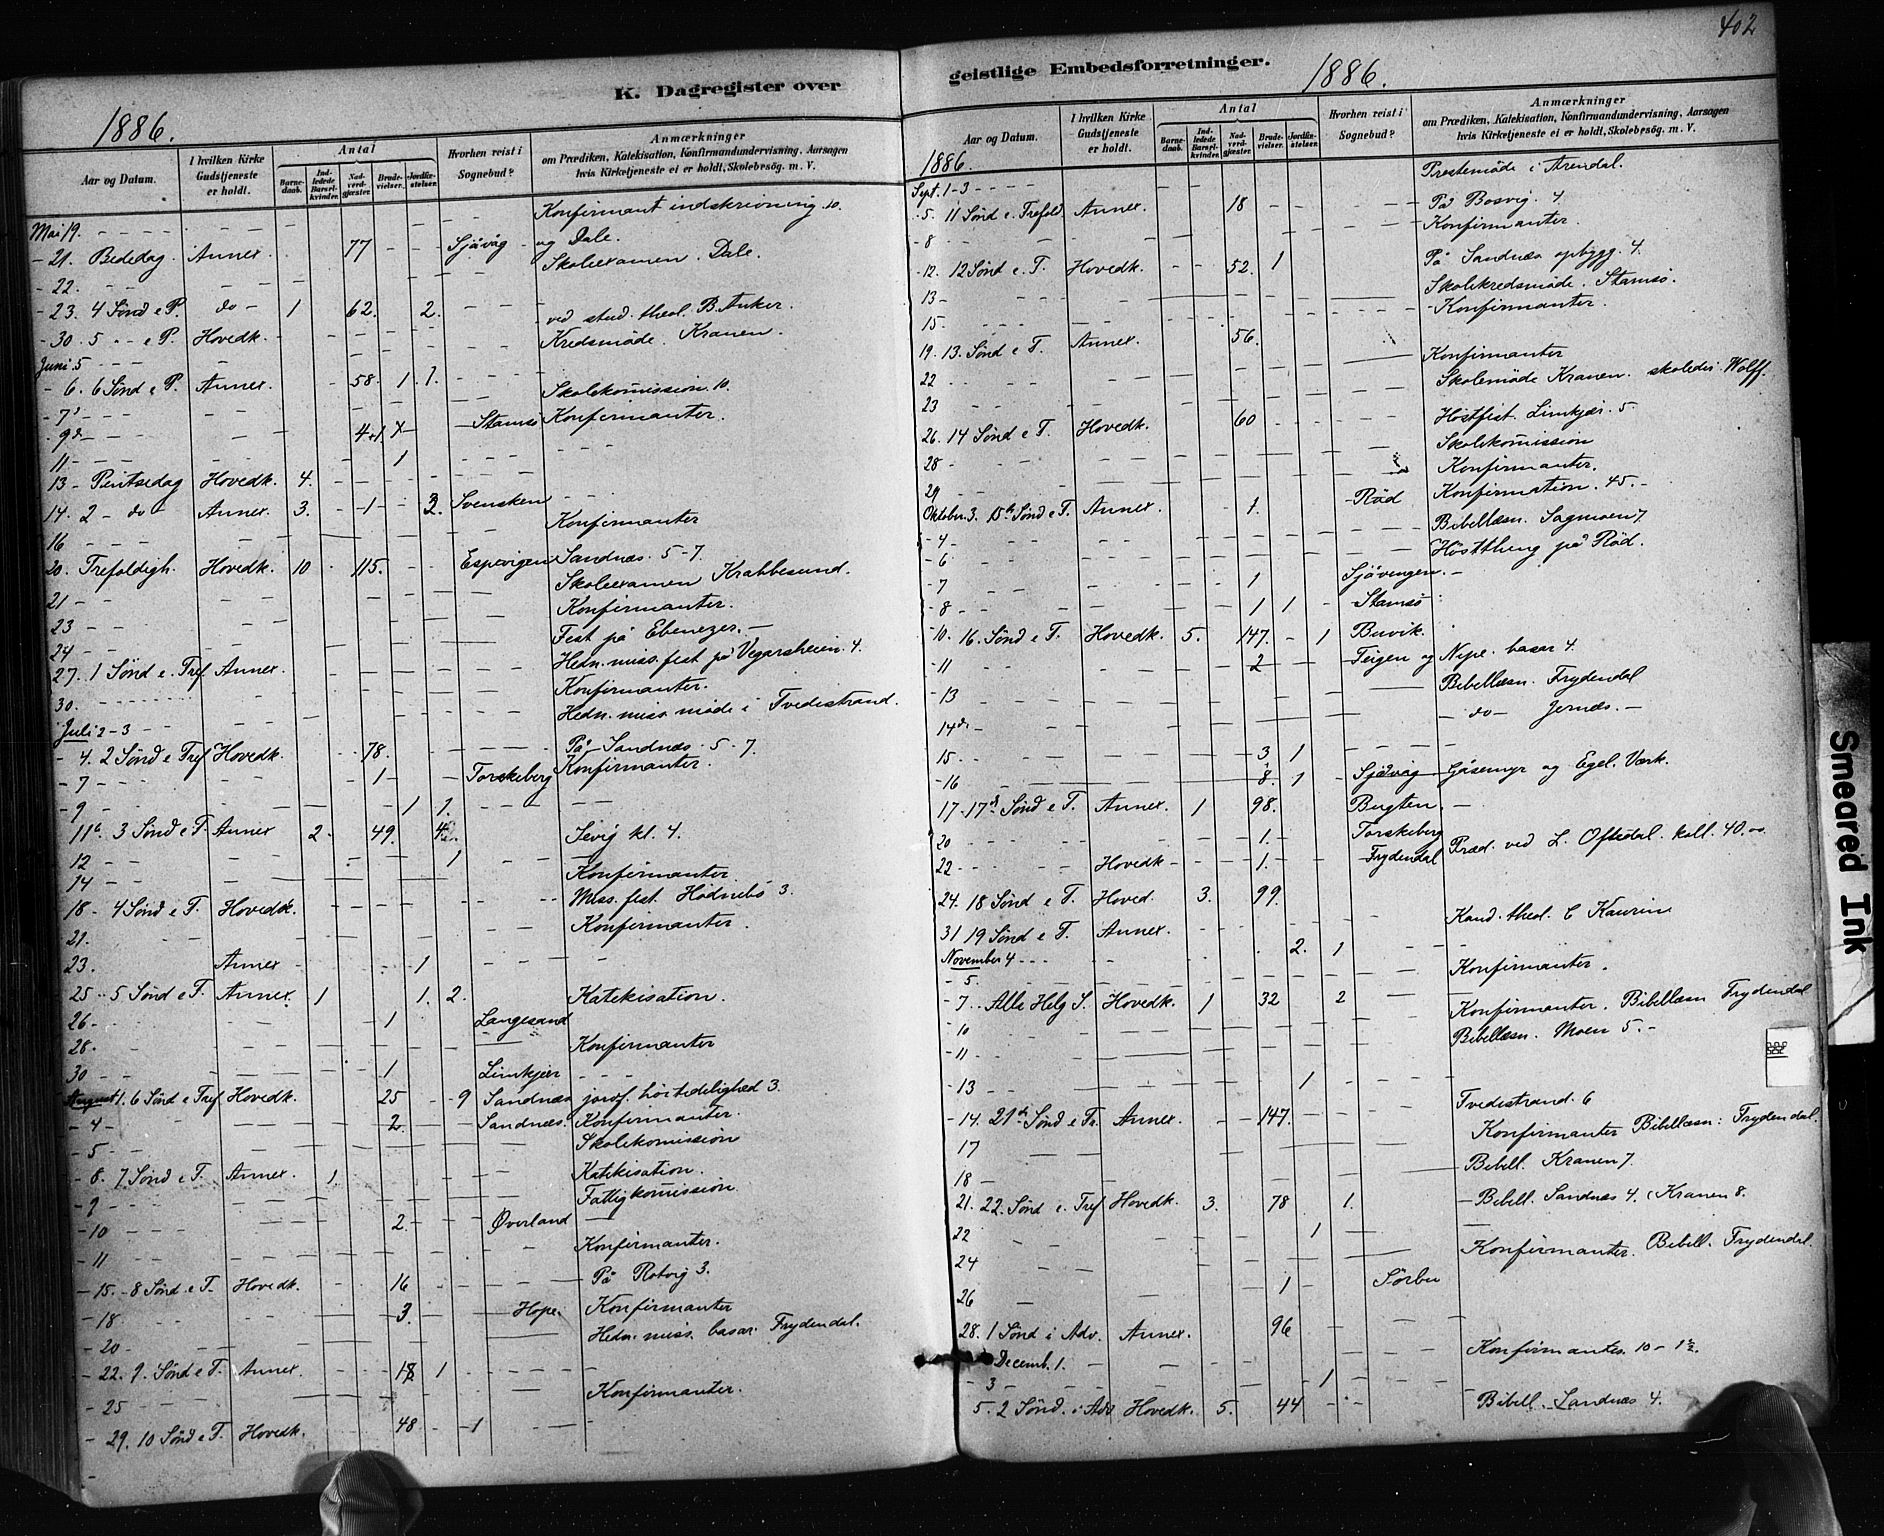 402
K. Dagregister over geistlige Embedsforretninger.
1886.
1886.
Aar og Datum. I hvilken Kirke Gudstjeneste er holdt. Antal Barnedaab. Indledede Barselkvinder. Nadverdgjæster. Brudevielser. Jordfæstelser. Hvorhen reist i Sognebud? Anmærkninger om Prædiken, Katekisation, Konfirmandundervisning, Aarsagen hvis Kirketjeneste ei er holdt, Skolebesög. m. V.
Mai 19. Konfirmant indskrivning 10.
- 21. Bededag. Annex. 77 Sjåvåg og Dale.
- 22. Skoleexamen. Dale.
- 23. 4 Sønd e P. do 1 62. 2.
- 30. 5 " e P. Hovedk. ved stud. theol. B. Anker.
Juni 5 Kredsmøde. Kranen.
- 6. 6 Sønd e P. Annex. 58. 1. 1.
- 7 Skolekomission 10.
- 9 4+1 Stamsø Konfirmanter.
11 1
13 - Pintsedag Hovedk. 4.
14. 2 - do - Annex. 3. 1 3. Svensken
16 Konfirmanter
20. Trefoldigh. Hovedk. 10 115. Espevigen Sandnæs. 5-7.
21 Skoleexamen Krabbesund.
23 Konfirmanter.
24 Fest på Ebenezer.
27. 1 Sønd e. Tref. Annex. Hedn. miss. fest på Vegarsheien. 4.
30. Konfirmanter.
Juli 2-3 Hedn. miss. møde i Tvedestrand.
- 4. 2 Sønd e Tref Hovedk. 78. På Sandnæs. 5-7.
- 7 1 Torskeberg Konfirmanter.
- 9 1 1.
11 3 Sønd e T. Annex 2. 49. 4 Sevig kl. 4.
12 1
14 Konfirmanter
18 - 4 Sønd e T. Hovedk. Miss. fest. Hødnebø 3.
21. Konfirmanter.
23. Annex 1
25 5 Sønd e T. Annex. 1 1. 2. Katekisation.
26 1 Langesand
28. Konfirmanter
30 1 Limkjær
August 1. 6 Sønd e Tref Hovedk. 25 9 Sandnæs 3.
- 4 2. Sandnæs. Konfirmanter.
- 5 Skolekomission
- 8. 7 Sønd e T. Annex. 1. Katekisation.
- 9 Fattigkomission
- 10 2 Øverland
- 11 Konfirmanter.
- 15. 8 Sønd e T. Hovedk. 16 På Rotvig 3.
- 18 3. Hope. Konfirmanter
- 20 Hedn. miss. basar. Frydendal.
- 22. 9. Sønd e T. Annex. 18 1
- 25 Konfirmanter.
- 29. 10 Sønd e T. Hovedk. 48 1
Aar og Datum. I hvilken Kirke Gudstjeneste er holdt. Antal Barnedaab. Indledede Barselkvinder. Nadverdgjæster. Brudevielser. Jordfæstelser. Hvorhen reist i Sognebud? Anmærkninger om Prædiken, Katekisation, Konfirmandundervisning, Aarsagen hvis Kirketjeneste ei er holdt, Skolebesög. m. V.
1886.
Sept. 1-3 Prestemöde i Arendal.
- 5. 11 Sønd e. Trefold Annex. 18 På Bosvig. 4
- 8 Konfirmanter.
- 12. 12 Sønd e. T. Hovedk. 52. 1 På Sandnæs opbygg. 4.
13 Skolekredsmøde. Stamsø.
15. Konfirmanter.
19. 13. Sønd e T. Annex. 56.
22 Konfirmanter
23 Skolemøde Kranen. skoledir Wolff.
26. 14 Sønd e T. Hovedk. 60 Høstfest. Limkjær. 5.
28 Skolekomission
29 Konfirmanter.
Oktober. 3. 15de Sønd e T. Annex. 1. Rød Konfirmation. 45.
- 4 Bibellæsn. Sagmoen 7.
- 6 Høstthing på Rød.
- 7 1 Sjåvengen.
- 8 1 1 Stamsø
- 10. 16. Sønd e T. Hovedk. 5. 147. 1 Buvik.
- 11 2 Teigen og Nipe. basar 4.
- 13 Bibellæsn. Frydendal
14 do Jernæs.
15. 3 1
- 16 8. 1 Sjåvåg Gåsemyr og Egel. Værk.
17. 17de Sønd e T. Annex. 1 98. Bugten.
20 1. Torskeberg
22 Hovedk 1. Frydendal Præd. ved L. Oftedal. koll. 40.00
24. 18 Sønd e T. Hoved. 3. 99.
31 19 Sønd e T. Annex. Kand. theol. C Kaurin
November 4 2. 1
- 5. Konfirmanter.
- 7. Alle Helg S. Hovedk. 1 32 2
10 Konfirmanter. Bibellæsn Frydendal
- 11 Bibellæsn. Moen 5.
- 13 1
- 14. 21de Sønd e Tr. Annex. 147. Tvedestrand. 6
17 Konfirmanter Bibellæsn: Frydendal.
18 Bibell. Kranen 7.
21. 22. Sønd e. Tref Hovedk. 3. 78 1. Bibell. Sandnæs 4. Kranen 8.
22 1
24 Konfirmanter. Bibell. Frydendal.
26 1 Sørbu
28. 1 Sønd i Adv. Annex. 96
Decemb. 1. Konfirmanter. 10 - 1½.
- 3 1
5. 2 Sønd. i Adv Hovedk. 5. 44 Bibell. Sandnæs 4.
Smeared Ink